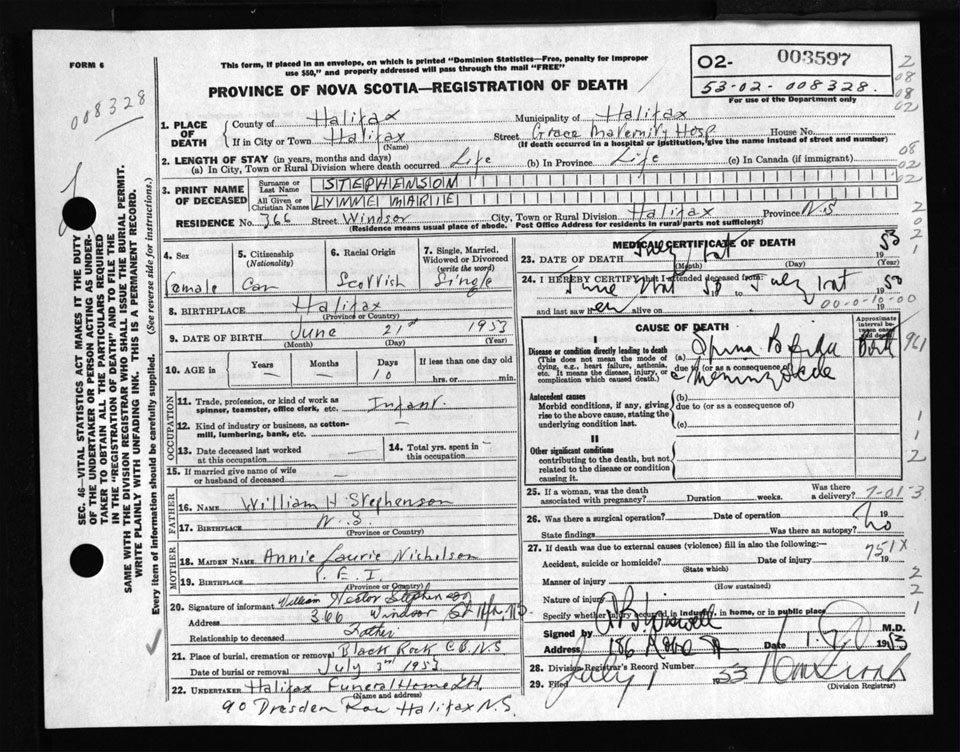 FORM 6
This form, if placed in an envelope, on which is printed "Dominion Statistics—Free, penalty for improper
use $50," and properly addressed will pass through the mail "FREE"
PROVINCE OF NOVA SCOTIA—REGISTRATION OF DEATH
02- 003597
53-02-008328.
For use of the Department only
008328
2
08
08
02
1. PLACE OF DEATH
County of Halifax Municipality of Halifax
If in City or Town Halifax Street Grace Maternity Hosp House No.
(Name) (If death occurred in a hospital or institution, give the name instead of street and number)
2. LENGTH OF STAY (in years, months and days)
(a) In City, Town or Rural Division where death occurred Life (b) In Province Life (c) In Canada (if immigrant)
08
02
02
3. PRINT NAME OF DECEASED
Surname or Last Name STEPHENSION
All Given or Christian Names LYNNE MARIE
RESIDENCE No. 366 Street Windsor City, Town or Rural Division Halifax Province N.S
(Residence means usual place of abode. Post Office Address for residents in rural parts not sufficient)
2
0
2
1
4. Sex
Female
5. Citizenship
(Nationality)
Can
6. Racial Origin
Scottish
7. Single, Married, Widowed or Divorced
(write the word)
Single
8. BIRTHPLACE Halifax
(Province or Country)
9. DATE OF BIRTH June 21st 1953
(Month) (Day) (Year)
10. AGE in
Years Months Days If less than one day old
— — 10 hrs. or min.
OCCUPATION
11. Trade, profession, or kind of work as
spinner, teamster, office clerk, etc. Infant.
12. Kind of industry or business, as cotton-
mill, lumbering, bank, etc. —
13. Date deceased last worked
at this occupation
14. Total yrs. spent in
this occupation —
15. If married give name of wife
or husband of deceased
FATHER
16. NAME William H Stephenson
17. BIRTHPLACE N.S.
(Province or Country)
MOTHER
18. MAIDEN NAME Annie Laurie Nicholson
19. BIRTHPLACE P.E.I.
(Province or Country)
20. Signature of informant William Stephenson
Address 366 Windsor St
Relationship to deceased Father
21. Place of burial, cremation or removal Black Rock C.B. N.S.
Date of burial or removal July 3rd 1953
22. UNDERTAKER Halifax Funeral Home Ltd.
(Name and address)
90 Dresden Row Halifax N.S.
MEDICAL CERTIFICATE OF DEATH
23. DATE OF DEATH July 1st 19 53
(Month) (Day) (Year)
24. I HEREBY CERTIFY that I attended deceased from:
June to July 1st 19
and last saw h er alive on 19
00-0-10-00
CAUSE OF DEATH
Approximate interval between onset and death
I
Disease or condition directly leading to death
(This does not mean the mode of dying, e.g., heart failure, asthenia, etc. It means the disease, injury, or complication which caused death.)
(a) Spina Bifida Birth
due to (or as a consequence of)
c Meningocele
961
Antecedent causes
Morbid conditions, if any, giving rise to the above cause, stating the underlying condition last.
(b)
due to (or as a consequence of)
(c)
II
Other significant conditions
contributing to the death, but not related to the disease or condition causing it.
1
1
2
25. If a woman, was the death associated with pregnancy? Duration weeks. Was there a delivery?
7-01-3
26. Was there a surgical operation? Date of operation 19
State findings Was there an autopsy? No
27. If death was due to external causes (violence) fill in also the following:
751X
Accident, suicide or homicide? Date of injury 19
(State which)
Manner of injury
(How sustained)
Nature of injury
Specify whether injury occurred in industry, in home, or in public place
2
2
1
Signed by M.D.
Address 186 Date 1953
28. Division Registrar's Record Number
29. Filed July 1953
(Division Registrar)
SEC. 46—VITAL STATISTICS ACT MAKES IT THE DUTY
OF THE UNDERTAKER OR PERSON ACTING AS UNDER-
TAKER TO OBTAIN ALL THE PARTICULARS REQUIRED
IN THE "REGISTRATION OF DEATH" AND TO FILE THE
SAME WITH THE DIVISION REGISTRAR WHO SHALL ISSUE THE BURIAL PERMIT.
WRITE PLAINLY WITH UNFADING INK. THIS IS A PERMANENT RECORD.
Every item of information should be carefully supplied. (See reverse side for instructions.)